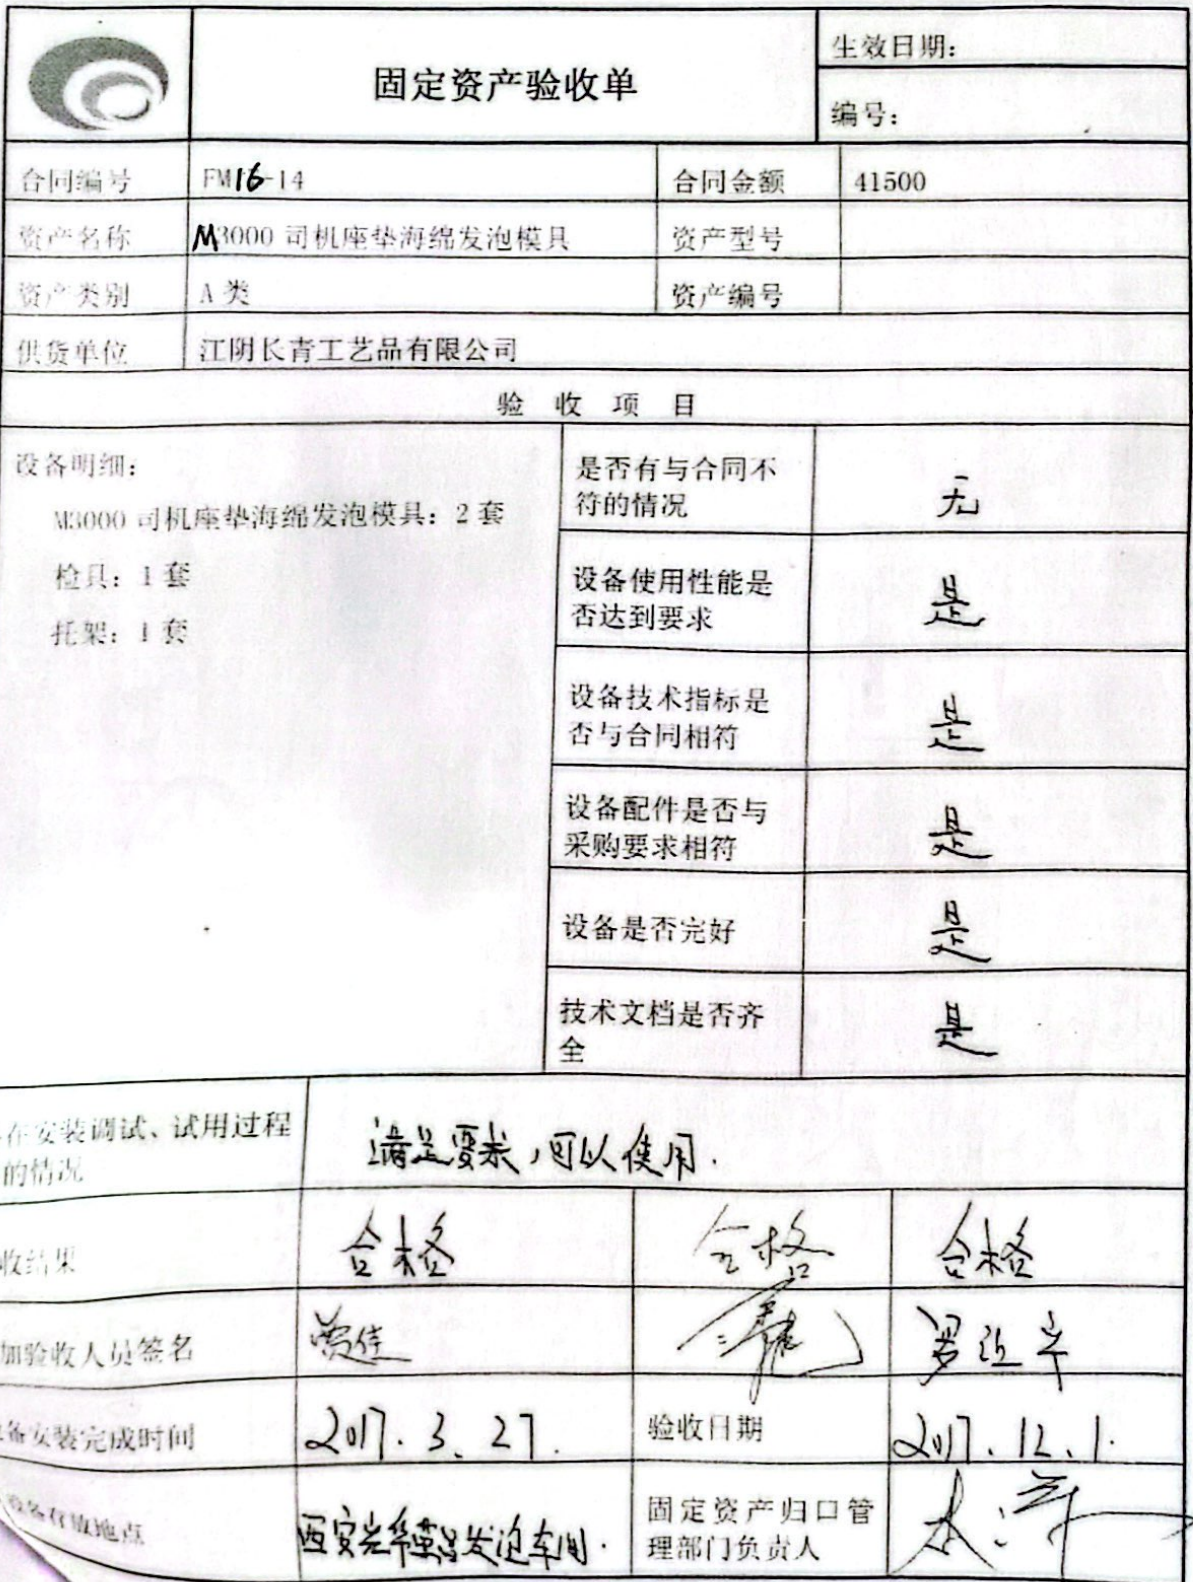 固定资产验收单
生效日期：
编号：
合同编号 FM16-14 合同金额 41500
资产名称 M3000 司机座垫海绵发泡模具 资产型号
资产类别 A 类 资产编号
供货单位 江阴长青工艺品有限公司
验 收 项 目
设备明细：
M3000 司机座垫海绵发泡模具：2 套
检具：1 套
托架：1 套
是否有与合同不
符的情况
无
设备使用性能是
否达到要求
是
设备技术指标是
否与合同相符
是
设备配件是否与
采购要求相符
是
设备是否完好
是
技术文档是否齐
全
是
在安装调试、试用过程
的情况
满足要求，可以使用.
收结果 合格 合格 合格
加验收人员签名
备安装完成时间 2017.3.27. 验收日期 2017.12.1.
设备存放地点 西安 发泡车间.
固定资产归口管
理部门负责人